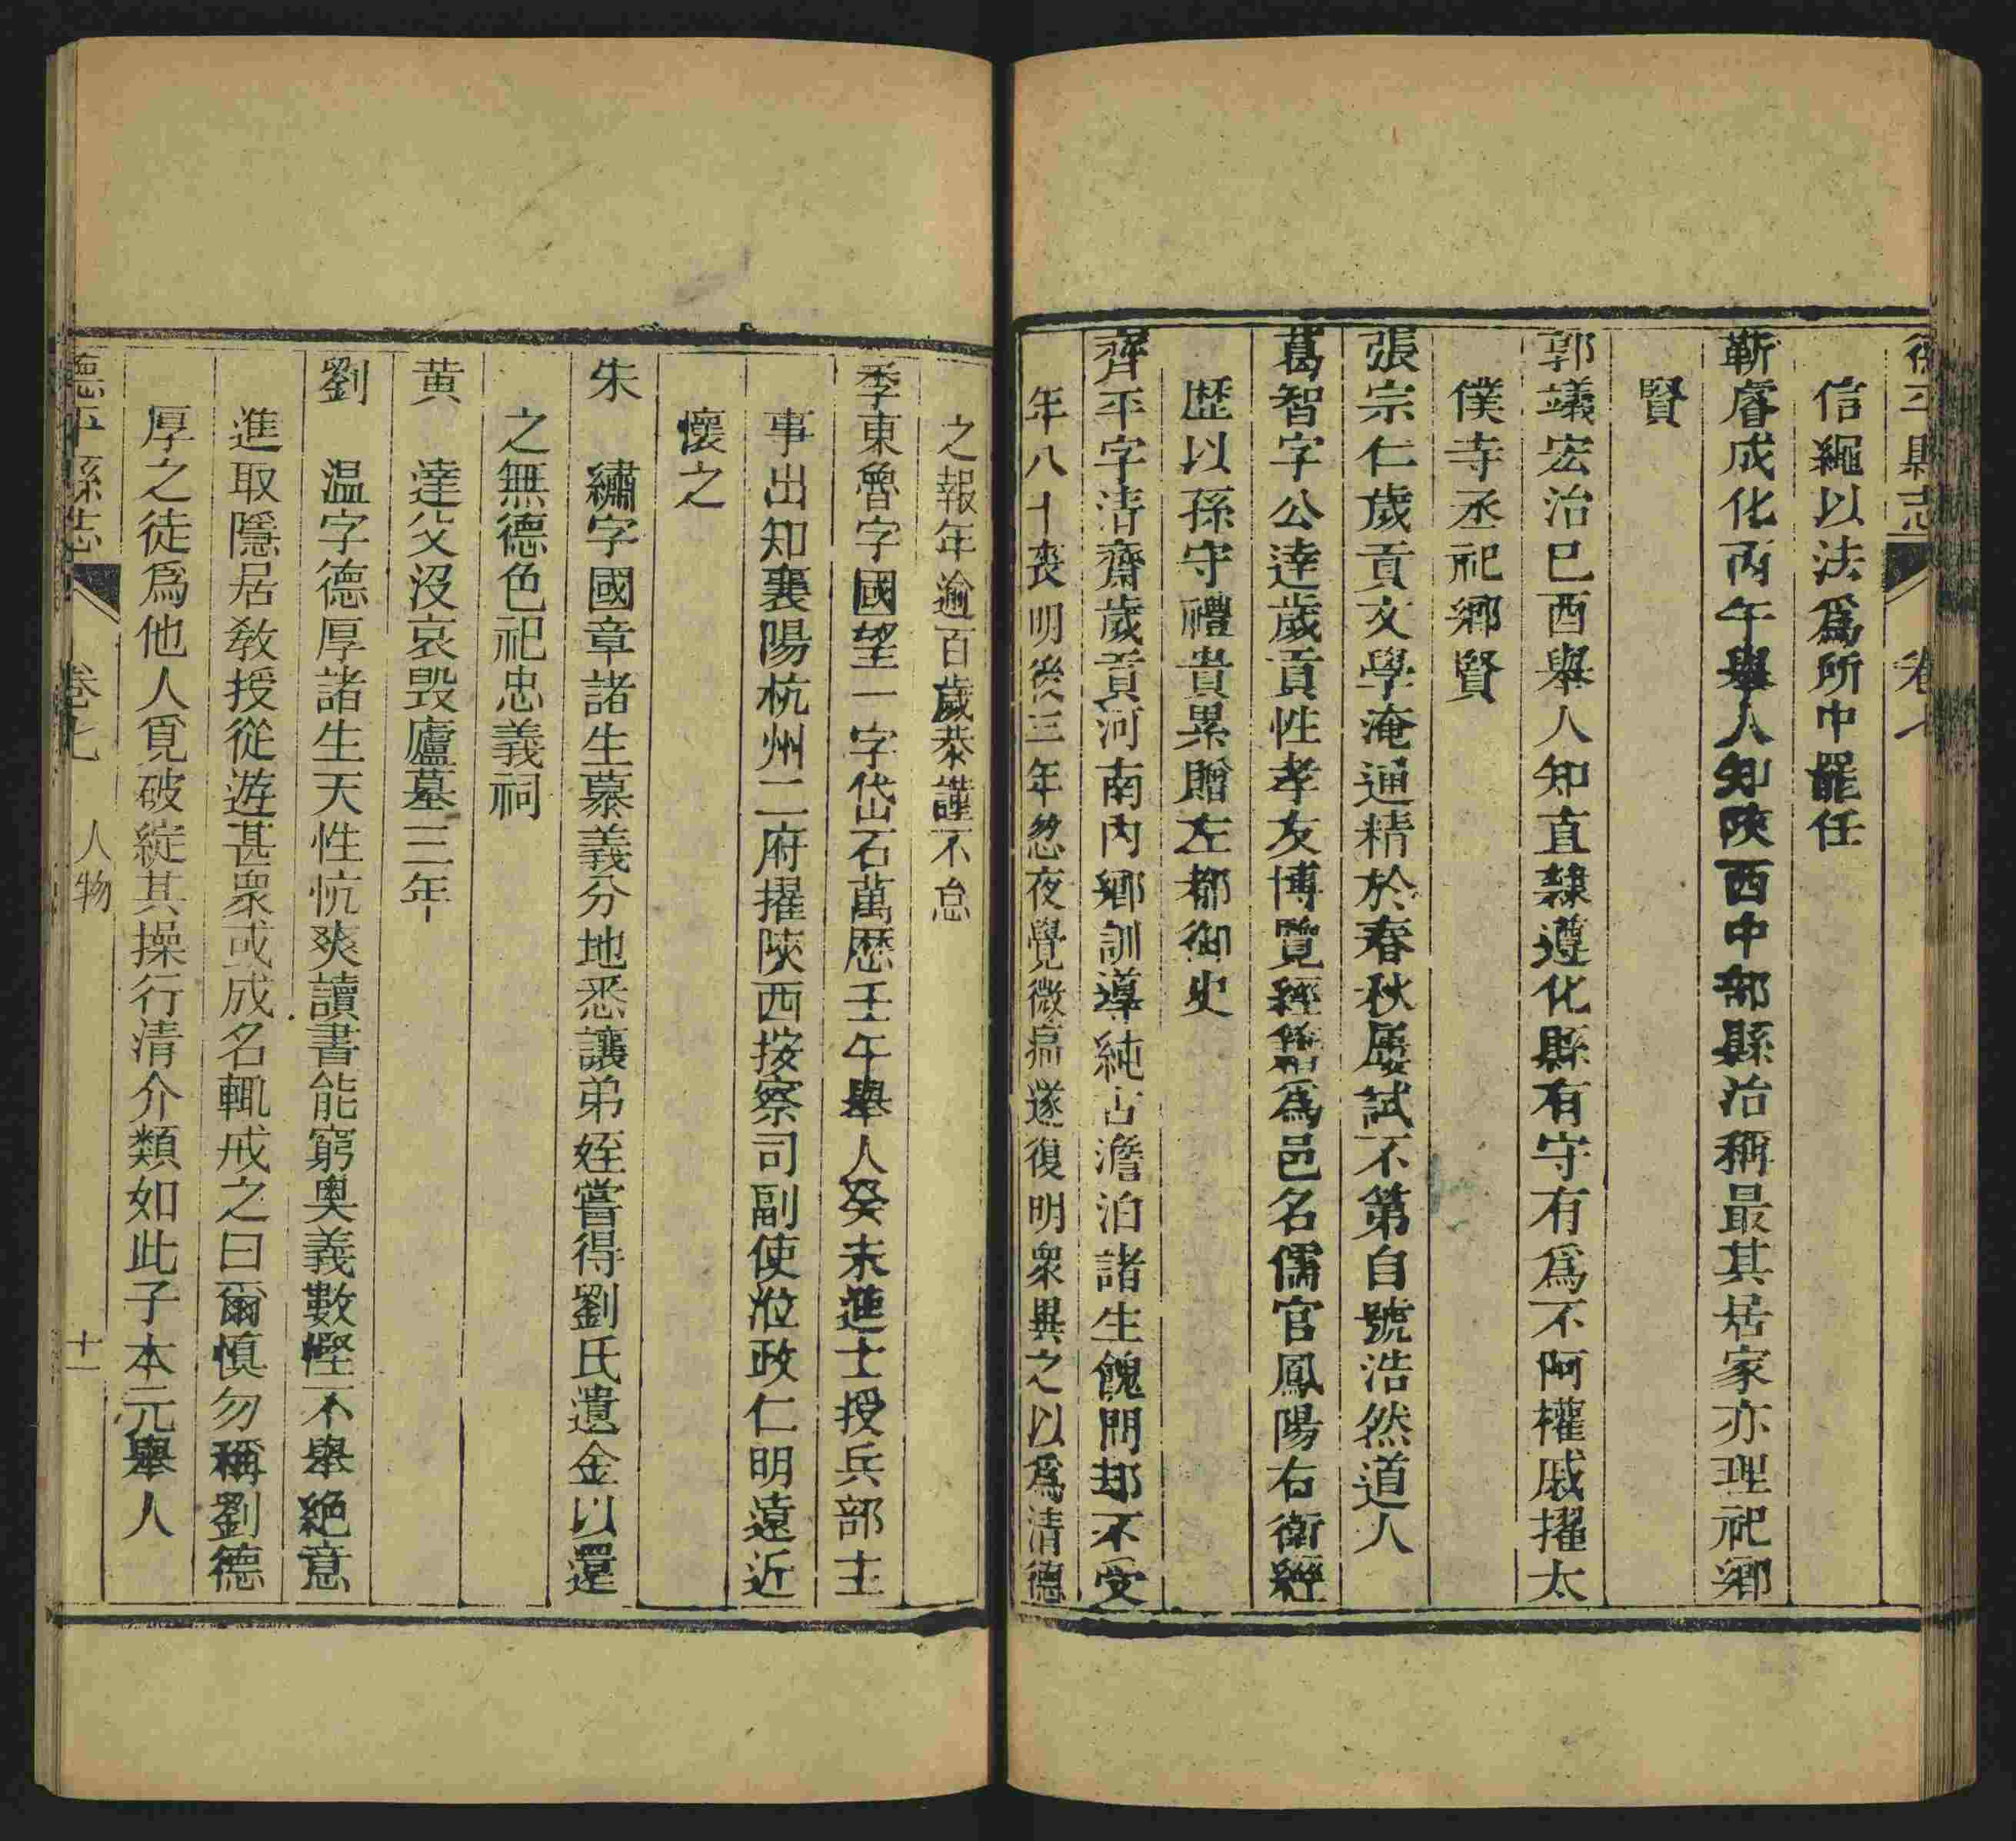 德平縣志 卷七
信繩以法爲所中罷任
靳睿成化丙午舉人知陝西中部縣治稱最其居家亦理祀鄉
賢
郭䑁宏治己酉舉人知直隸遵化縣有守有爲不阿權戚擢太
僕寺丞祀鄉賢
張宗仁歲貢文學淹通精於春秋屢試不第自號浩然道人
葛智字公達歲貢性孝友博覽經籍爲邑名儒官鳳陽右衛經
歷以孫守禮貴累贈左都御史
齊平字清齋歲貢河南內鄉訓導純古澹泊諸生餽問却不受
年八十喪明後三年忽夜覺微痛遂復明衆異之以爲清德
之報年逾百歲恭謹不怠
季東魯字國望一字岱石萬歷壬午舉人癸未進士授兵部主
事出知襄陽杭州二府擢陝西按察司副使涖政仁明遠近
懷之
朱 繡字國章諸生慕義分地悉讓弟姪嘗得劉氏遺金以還
之無德色祀忠義祠
黄 達父沒哀毀廬墓三年
劉 温字德厚諸生天性伉爽讀書能窮奥義數慳不舉絶意
進取隱居教授從遊甚衆或成名輒戒之曰爾慎勿稱劉德
厚之徒爲他人覓破綻其操行清介類如此子本元舉人
德平縣志 卷七 人物 十一